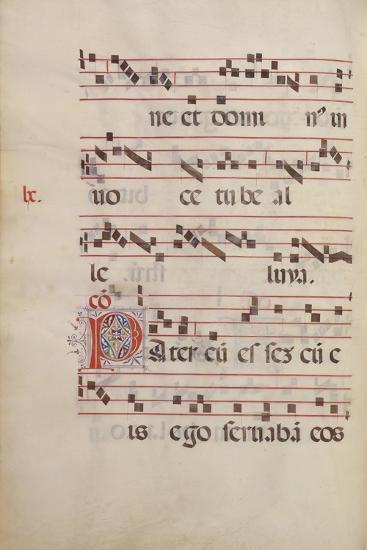 ne et domi nꝰ in
lx. uo ce tu be al
le luya.
cō
Pater cū es sez cū e
is ego seruabā eos